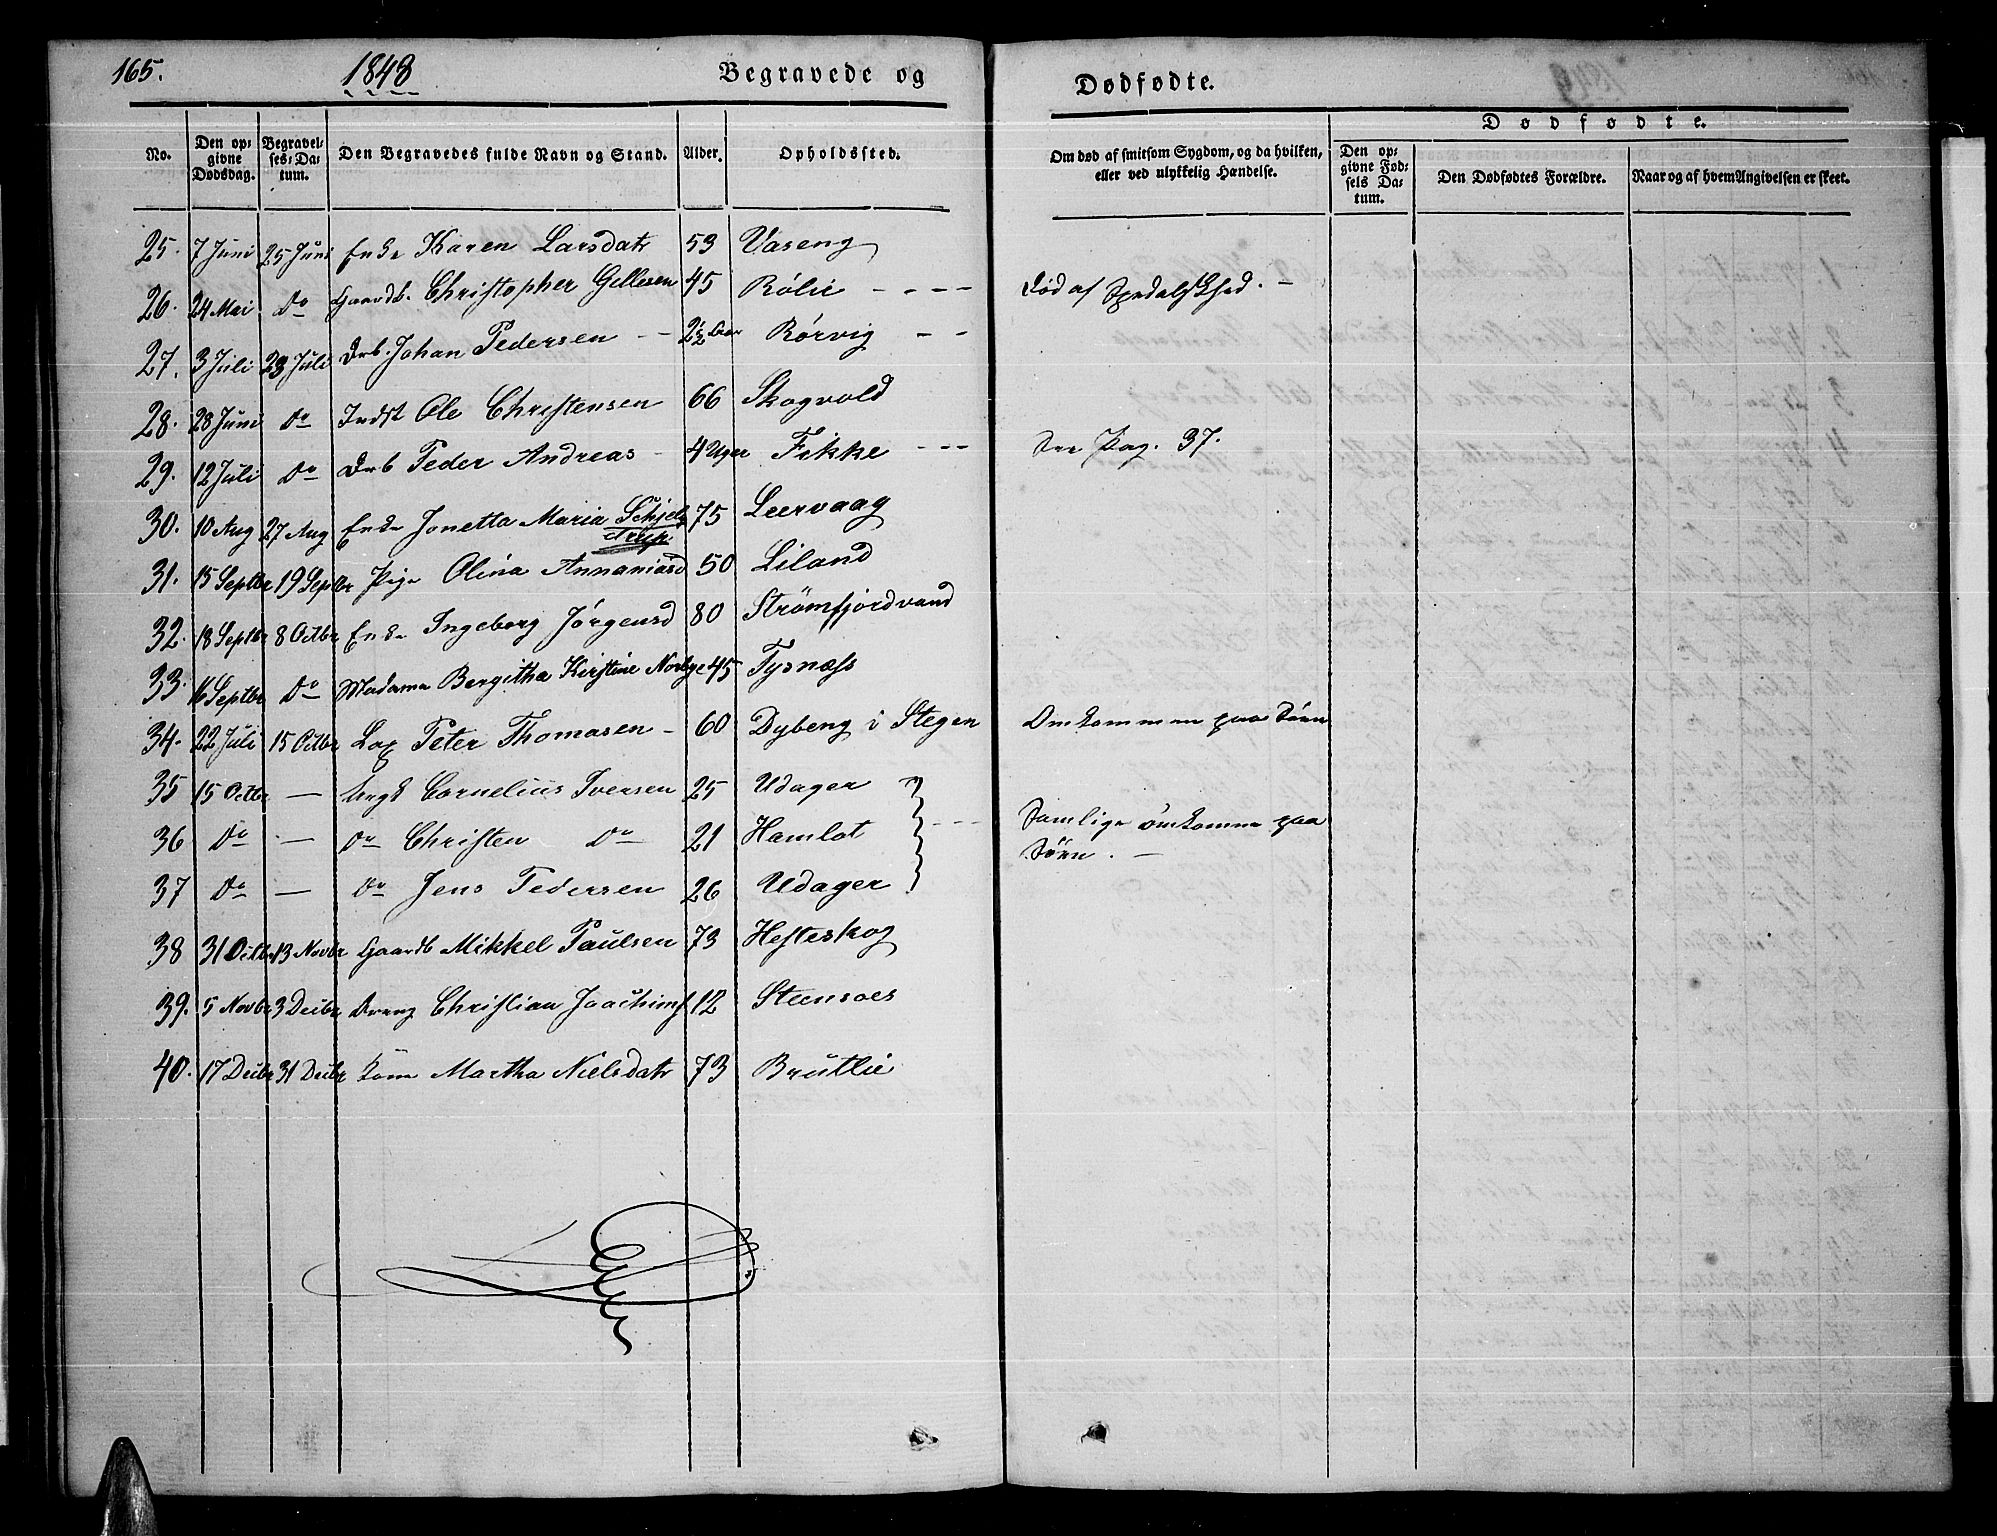 165.
1848
Begravede og
Dødfødte.
No.
Den op-
givne
Dødsdag.
Begravel-
ses-Da-
tum.
Den Begravedes fulde Navn og Stand.
Alder.
Opholdssted.
Om død af smitsom Sygdom, og da hvilken,
eller ved ulykkelig Hændelse.
Dødfødte.
Den op-
givne Fød-
sels Da-
tum.
Den Dødfødtes Forældre.
Naar og af hvem Angivelsen er skeet.
25. 7 Juni 25 Juni Enke Karen Larsdatr 53 Vaseng
26. 24 Mai Do Gaardb. Christopher Gellesen 45 Rølie - - - - Død af Spedalskhed. -
27. 3 Juli 23 Juli Drb. Johan Pedersen - 2½ Aar Rørvig - -
28. 28 Juni Do Indst Ole Christensen 66 Skogvold
29. 12 Juli Do Drb Peder Andreas - 4 Uger Fikke - - - See Pag. 37.
30. 10 Aug 27 Aug Enke Jonetta Maria Schjel- 75 Leervaag
drup
31. 15 Septbr 19 Septbr Pige Olina Annaniasd 50 Liland
32. 18 Septbr 8 Octbr Enke Ingeborg Jørgensd 80 Strømfjordvand
33. 16 Septbr Do Madame Bergitha Kirstine Norbye 45 Tysnæss
34. 22 Juli 15 Octbr Lap Peter Thomasen - 60 Dybeng i Stegen Omkommen paa Søen
35 15 Octbr - Ungk Cornelius Iversen 25 Udager
36 Do - Do Christen Do 21 Hamlot - - - Samlige omkomne paa
Søen. -
37 Do - Do Jens Pedersen 26 Udager
38 31 Octbr 13 Novbr Gaardb Mikkel Paulsen 73 Hesteskog
39. 5 Novbr 3 Decbr Dreng Christian Joachims 12 Steensoes
40. 17 Decbr 31 Decbr Kone Martha Nielsdatr 73 Brutlie